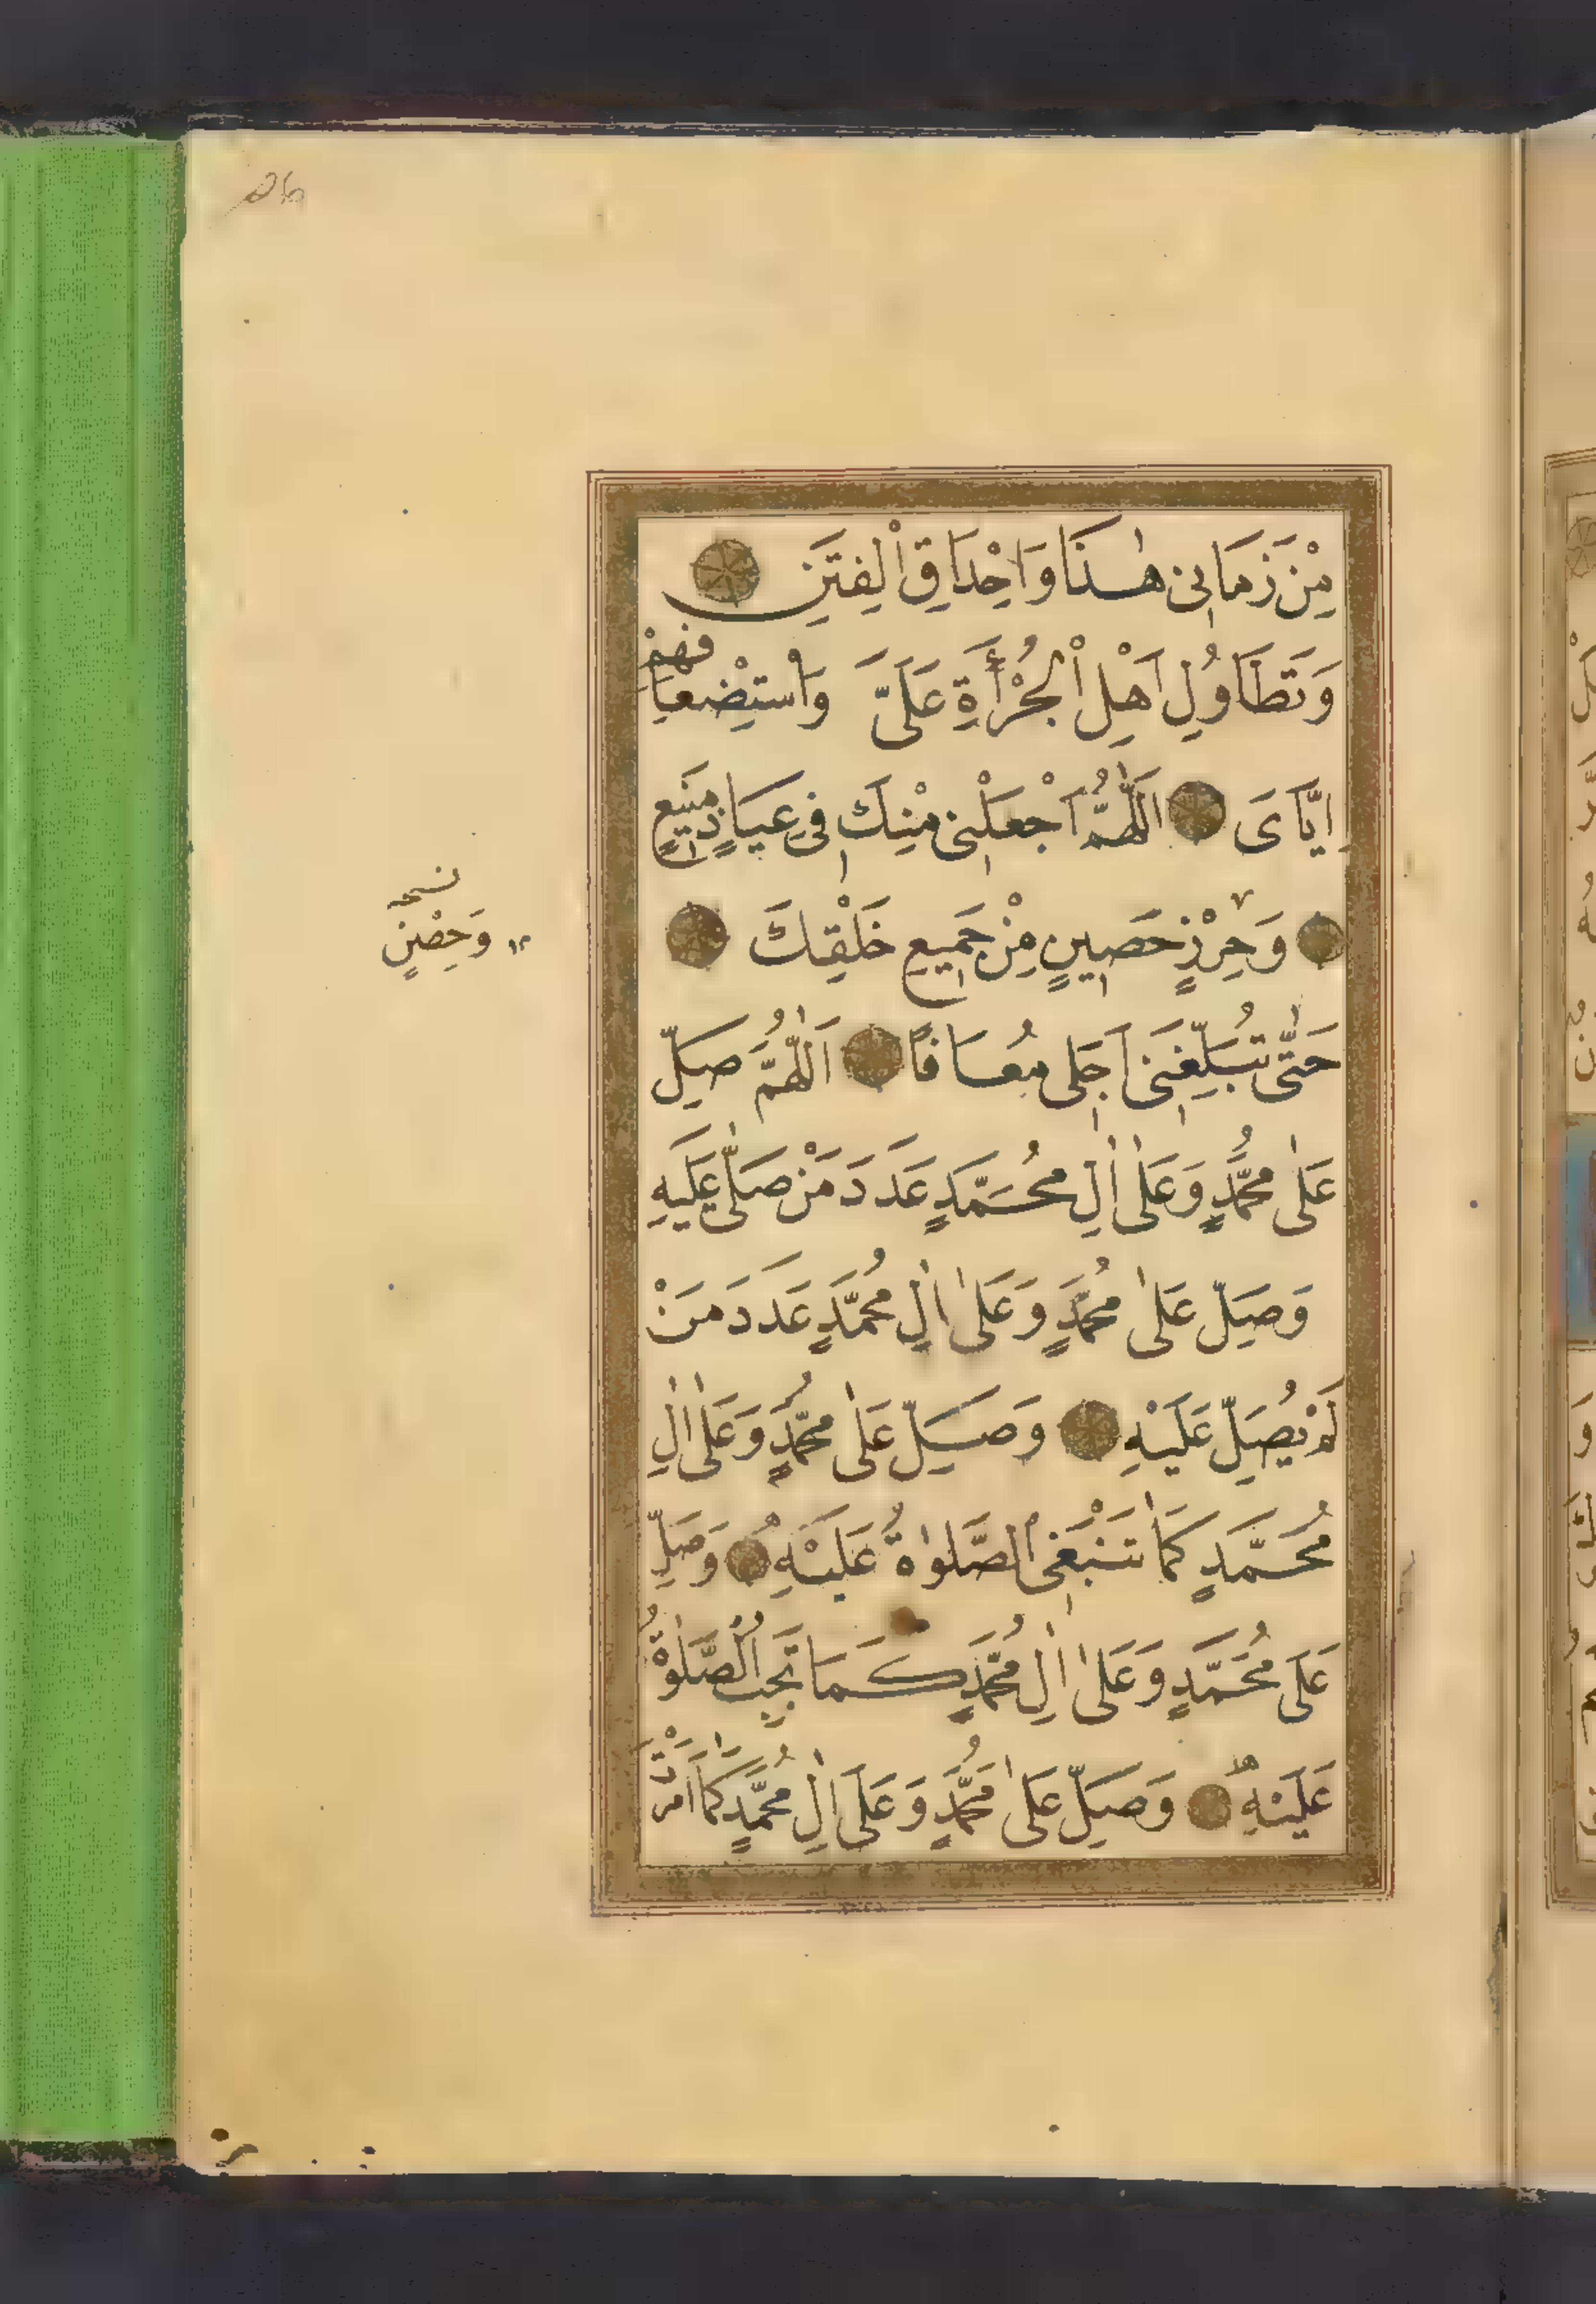 مِنْ زَمَانِی هٰذَا وَاِحْدَاقِ الْفِتَنِ
وَتَطَاوُلِ اَهْلِ الْجُرْأَةِ عَلَیَّ وَاسْتِضْعَافِهِمْ
اِیَّایَ اَللّٰهُمَّ اجْعَلْنِی مِنْكَ فِی عِیَاذٍ مَنِیعٍ
وَحِرْزٍ حَصِینٍ مِنْ جَمِیعِ خَلْقِكَ
نسخه
وَحِصْنٍ
حَتّٰی تُبَلِّغَنِی اَجَلِی مُعَافًا اَللّٰهُمَّ صَلِّ
عَلٰی مُحَمَّدٍ وَعَلٰی اٰلِ مُحَمَّدٍ عَدَدَ مَنْ صَلّٰی عَلَیهِ
وَصَلِّ عَلٰی مُحَمَّدٍ وَعَلٰی اٰلِ مُحَمَّدٍ عَدَدَ مَنْ
لَمْ یُصَلِّ عَلَیْهِ وَصَلِّ عَلٰی مُحَمَّدٍ وَعَلٰی اٰلِ
مُحَمَّدٍ كَمَا تَنْبَغِی الصَّلوٰةُ عَلَیْهِ وَصَلِّ
عَلَی مُحَمَّدٍ وَعَلٰی اٰلِ مُحَمَّدٍ كَمَا تَجِبُ الصَّلٰوةُ
عَلَیْهِ وَصَلِّ عَلٰی مُحَمَّدٍ وَعَلَی اٰلِ مُحَمَّدٍ كَمَا اَمَرْتَ